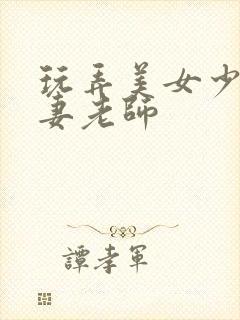 玩弄美女少
妻老师
譚孝軍